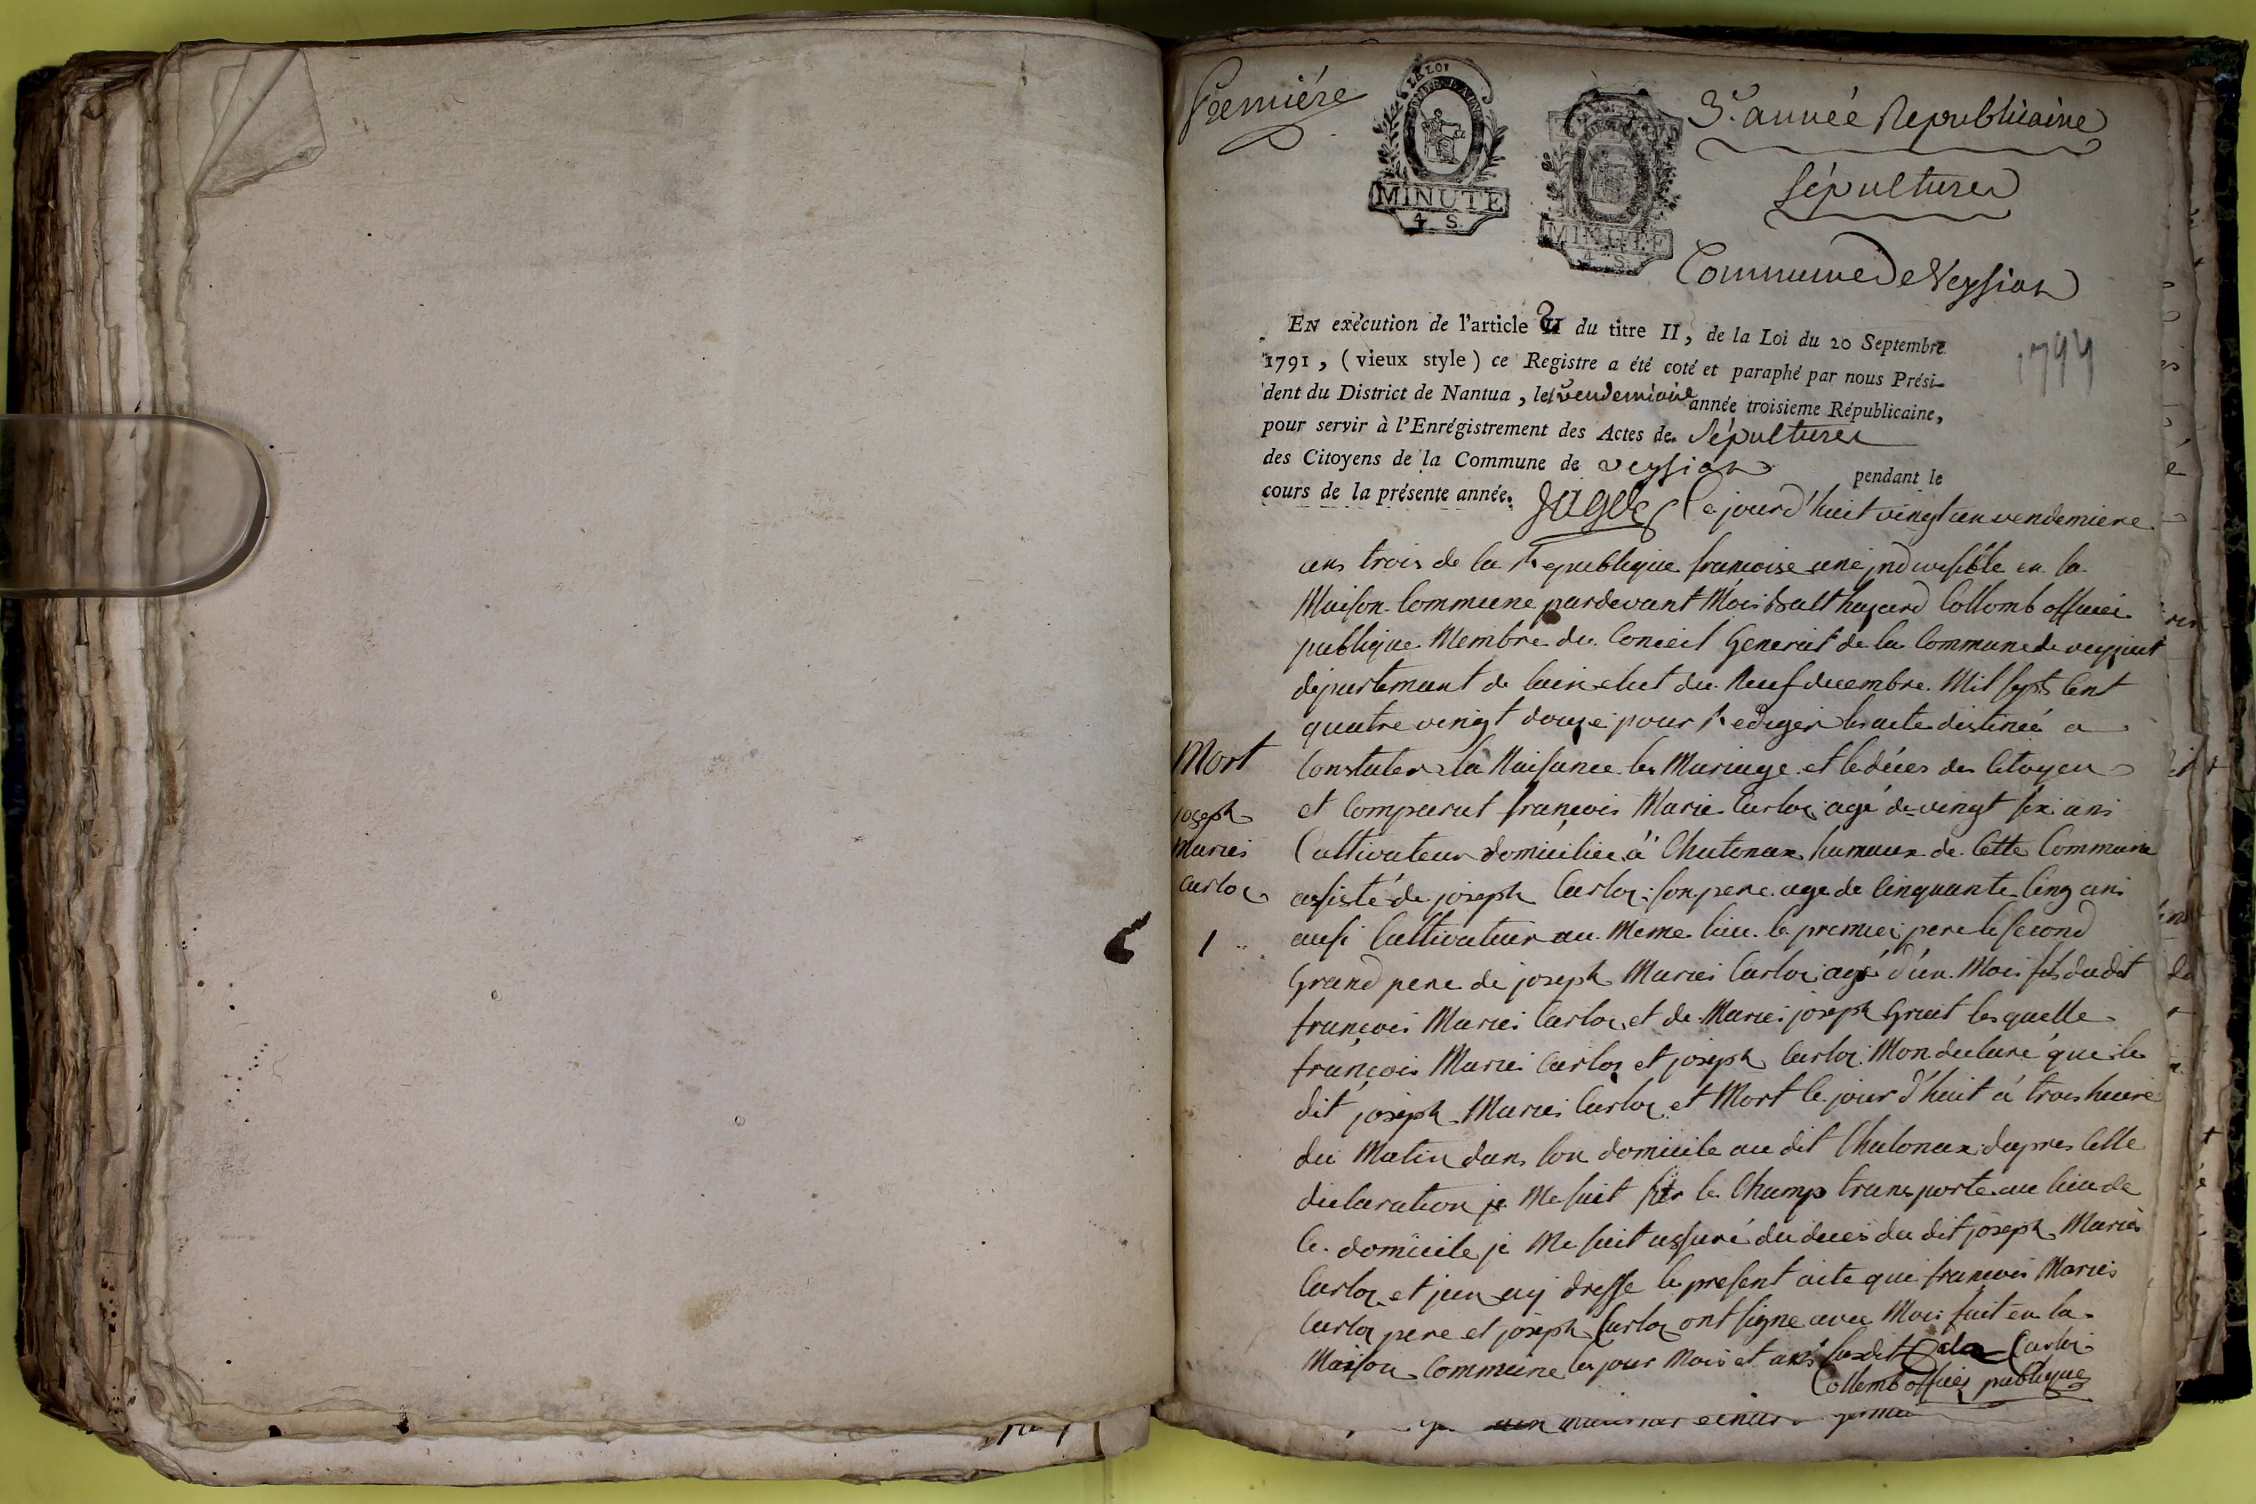 Premiére
LA LOI
MINUTE
4 S.
MINUTE
4 S.
3e. année Republicaine
Sépultures
Commune de Veyssiat
EN exécution de l'article 2 du titre II, de la Loi du 20 Septembre
1791, (vieux style) ce Registre a été coté et paraphé par nous Prési-
dent du District de Nantua, le 1 vendemiaire année troisieme Républicaine,
1794
pour servir à l'Enrégistrement des Actes de Sépultures
des Citoyens de la Commune de veyssiat pendant le
cours de la présente année.
Ce jourd'huit vingt un vendemiere
ans trois de la Republique francoise une indivisible en la
Maison Commune pardevant Moi Balthazard Collomb officier
publique Membre du Conceil Generat de la Commune de veyziat
departemant de lain elut du Neuf decembre Mil sept Cent
quatre vingt douze pour Rediger les acte destinée a
Constater la Naisance les Mariage et le déces des Citoyen
et Comparut francois Marie Carloz agé de vingt six ans
Cultivateur domiciliee a Chatonax hamaux de Cette Commune
assisté de joseph Carloz son pere age de Cinquante Cinq ans
ausi Cultivateur au Meme lieu le premier pere le second
Grand pere de joseph Marie Carloz agé d'un Mois fils dudit
francois Marie Carloz et de Marie joseph Gruit les quelle
francois Marie Carloz et joseph Carloz Mon declaré que le
dit joseph Marie Carloz et Mort le jour d'huit á trois heure
du Matin dans son domicile au dit Chatonax dapres Cette
declaration je Me suit sur le Champ transporte au lieu de
Ce domicile je Me suit assuré du deces du dit joseph Marie
Carloz et jen ay dresse le present acte que francois Marie
Carloz pere et joseph Carloz ont signe avec Moi fait en la
Maison Commune les jour Mois et ans susdit Carloz
Collomb officier publique
Mort
joseph
Marie
Carloz
1